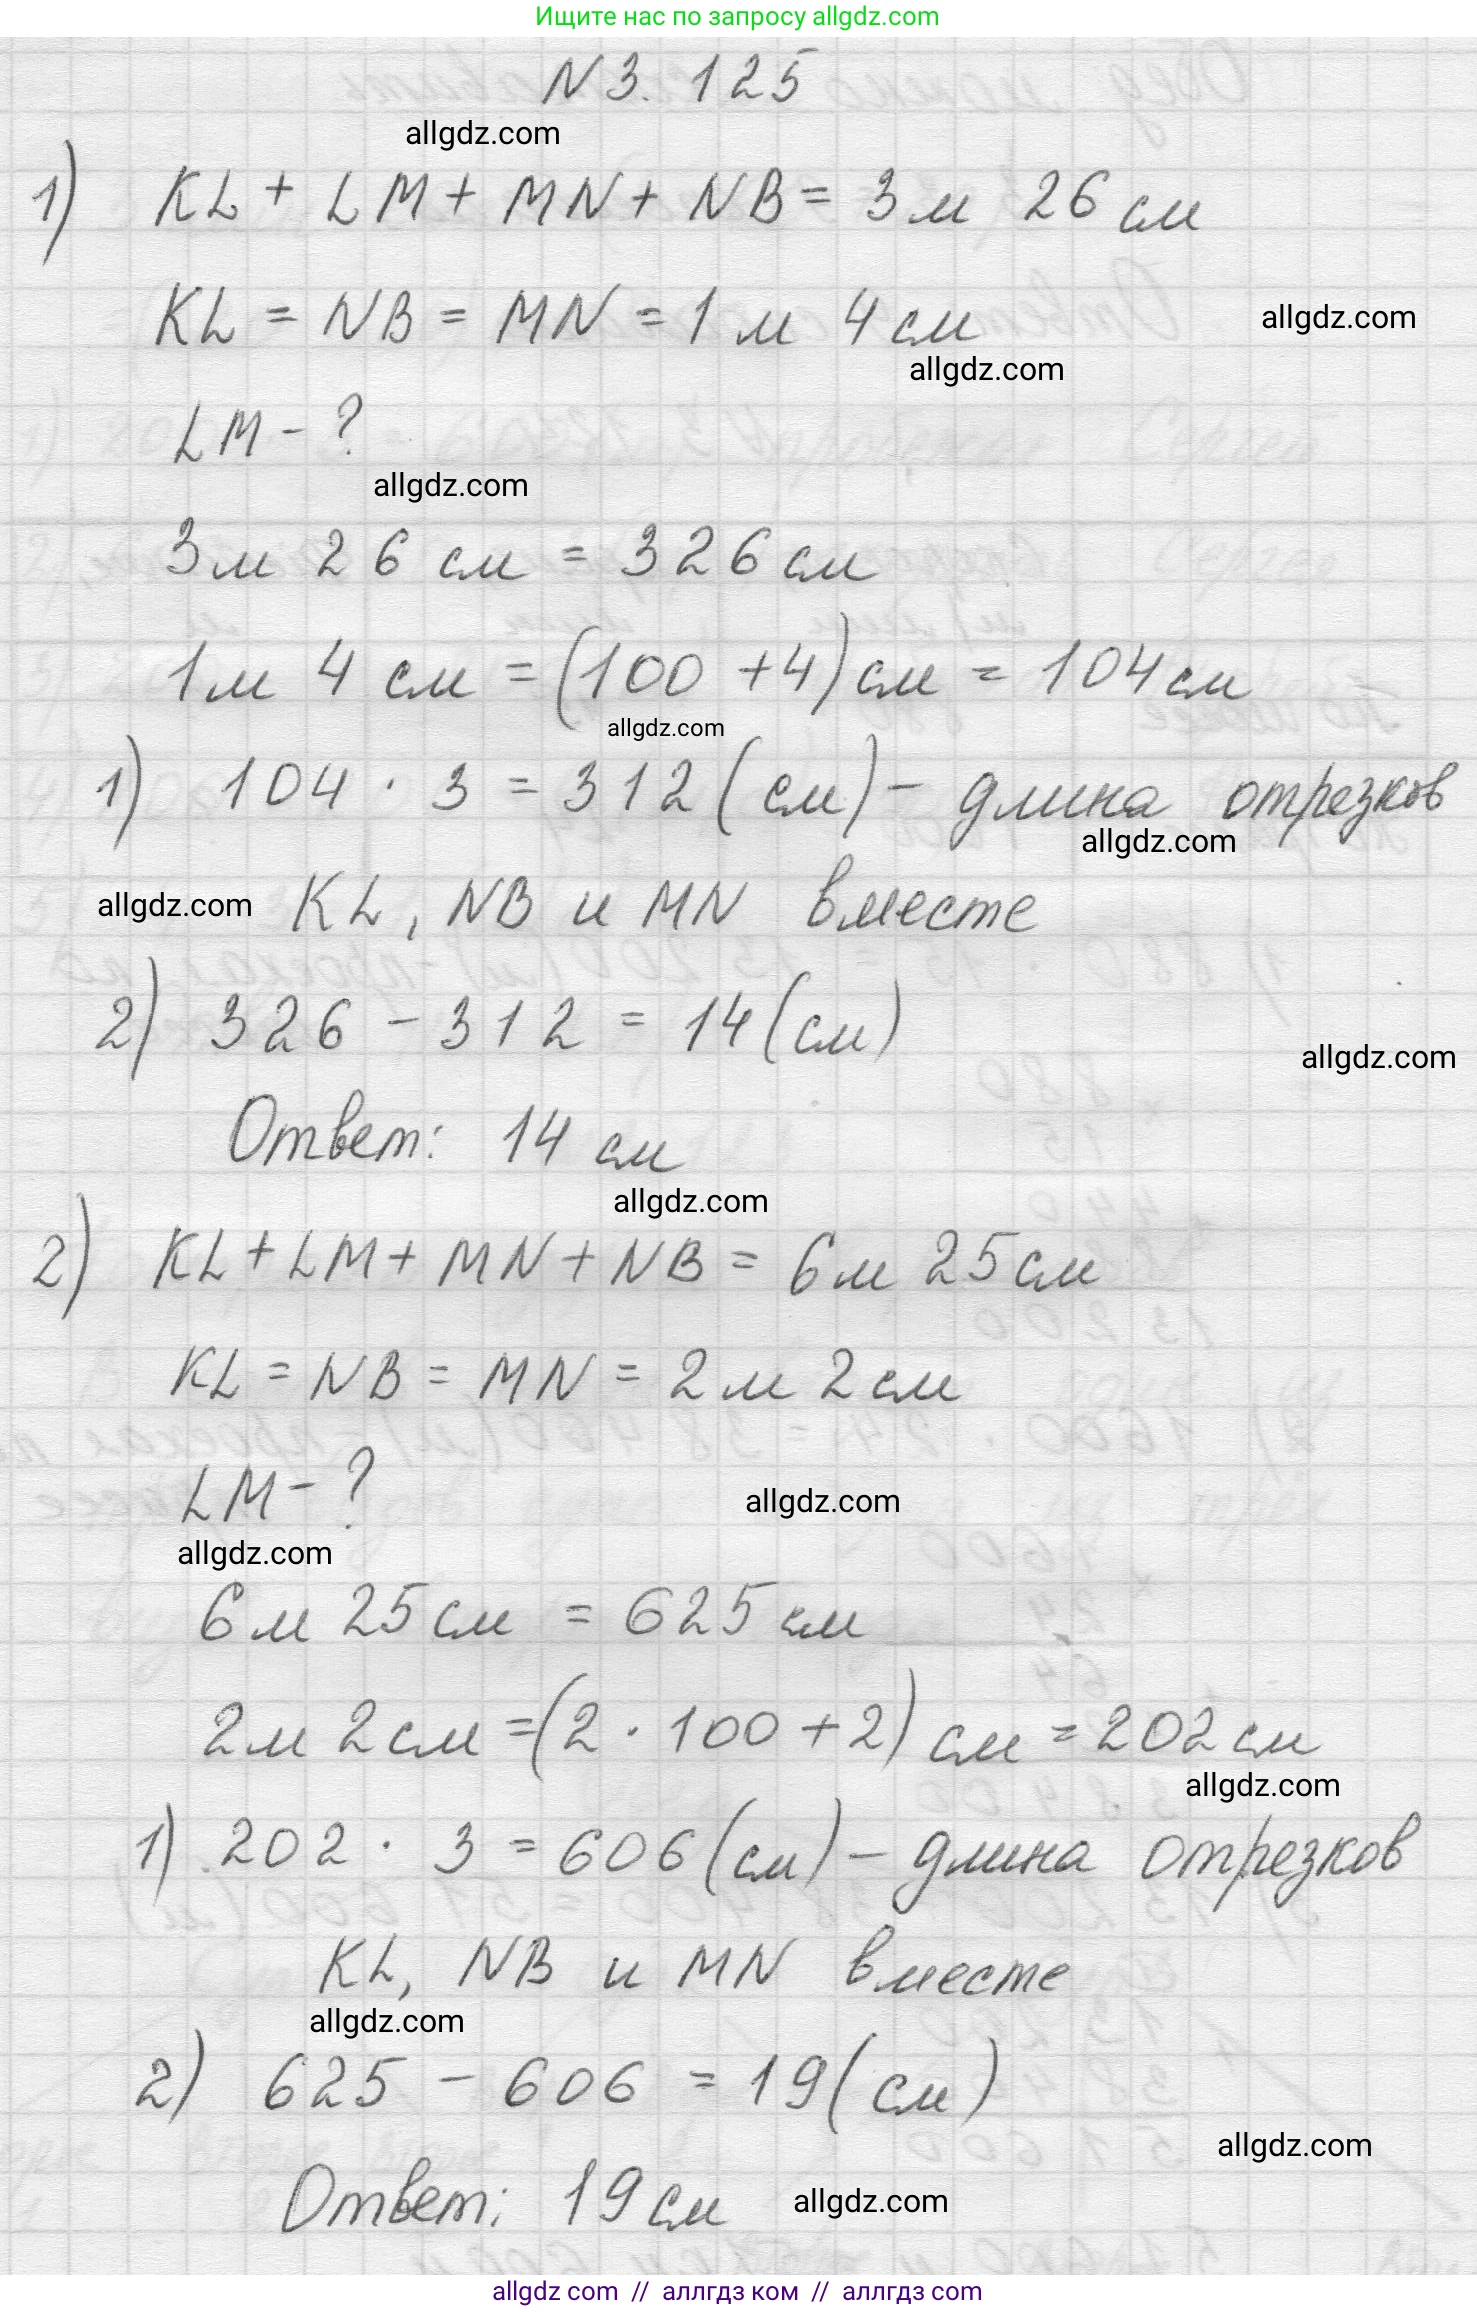 Ищите нас по запросу allgdz.com
N 3. 125
allgdz.com
1) KL + LM + MN + NB = 3 м 26 см
KL = NB = MN = 1 м 4 см
allgdz.com
allgdz.com
LM - ?
allgdz.com
3 м 26 см = 326 см
1 м 4 см = (100 + 4) см = 104 см
allgdz.com
1) 104 · 3 = 312 (см) - длина отрезков
allgdz.com
allgdz.com
KL, NB и MN вместе
2) 326 - 312 = 14 (см)
allgdz.com
Ответ: 14 см
allgdz.com
2) KL + LM + MN + NB = 6 м 25 см
KL = NB = MN = 2 м 2 см
LM - ?
allgdz.com
allgdz.com
6 м 25 см = 625 см
2 м 2 см = (2 · 100 + 2) см = 202 см
allgdz.com
1) 202 · 3 = 606 (см) - длина отрезков
KL, NB и MN вместе
allgdz.com
2) 625 - 606 = 19 (см)
allgdz.com
Ответ: 19 см
allgdz.com
allgdz com // аллгдз ком // аллгдз com